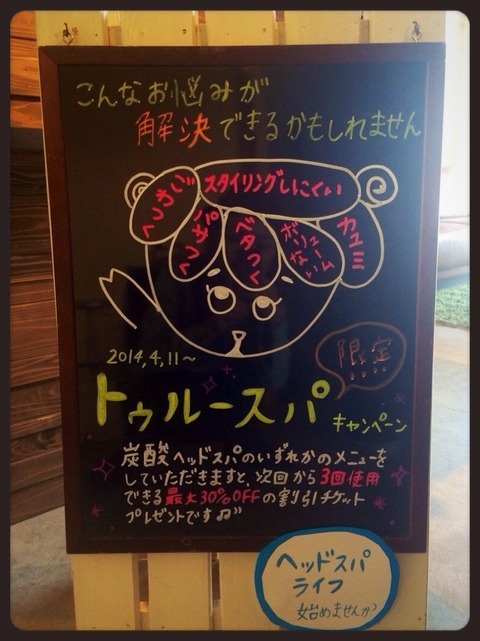 こんなお悩みが
解決できるかもしれません
スタイリングしにくい
ベタつく
ボリューム
ない
カユミ
2014,4,11~
限定
トゥルースパ
キャンペーン
炭酸ヘッドスパのいずれかのメニューを
していただきますと、次回から3回使用
できる最大30%OFFの割引チケット
プレゼントです♫"
ヘッドスパ
ライフ
始めませんか?